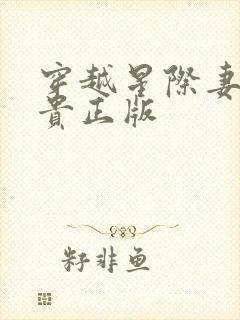 穿越星際妻
貴正版
籽非鱼